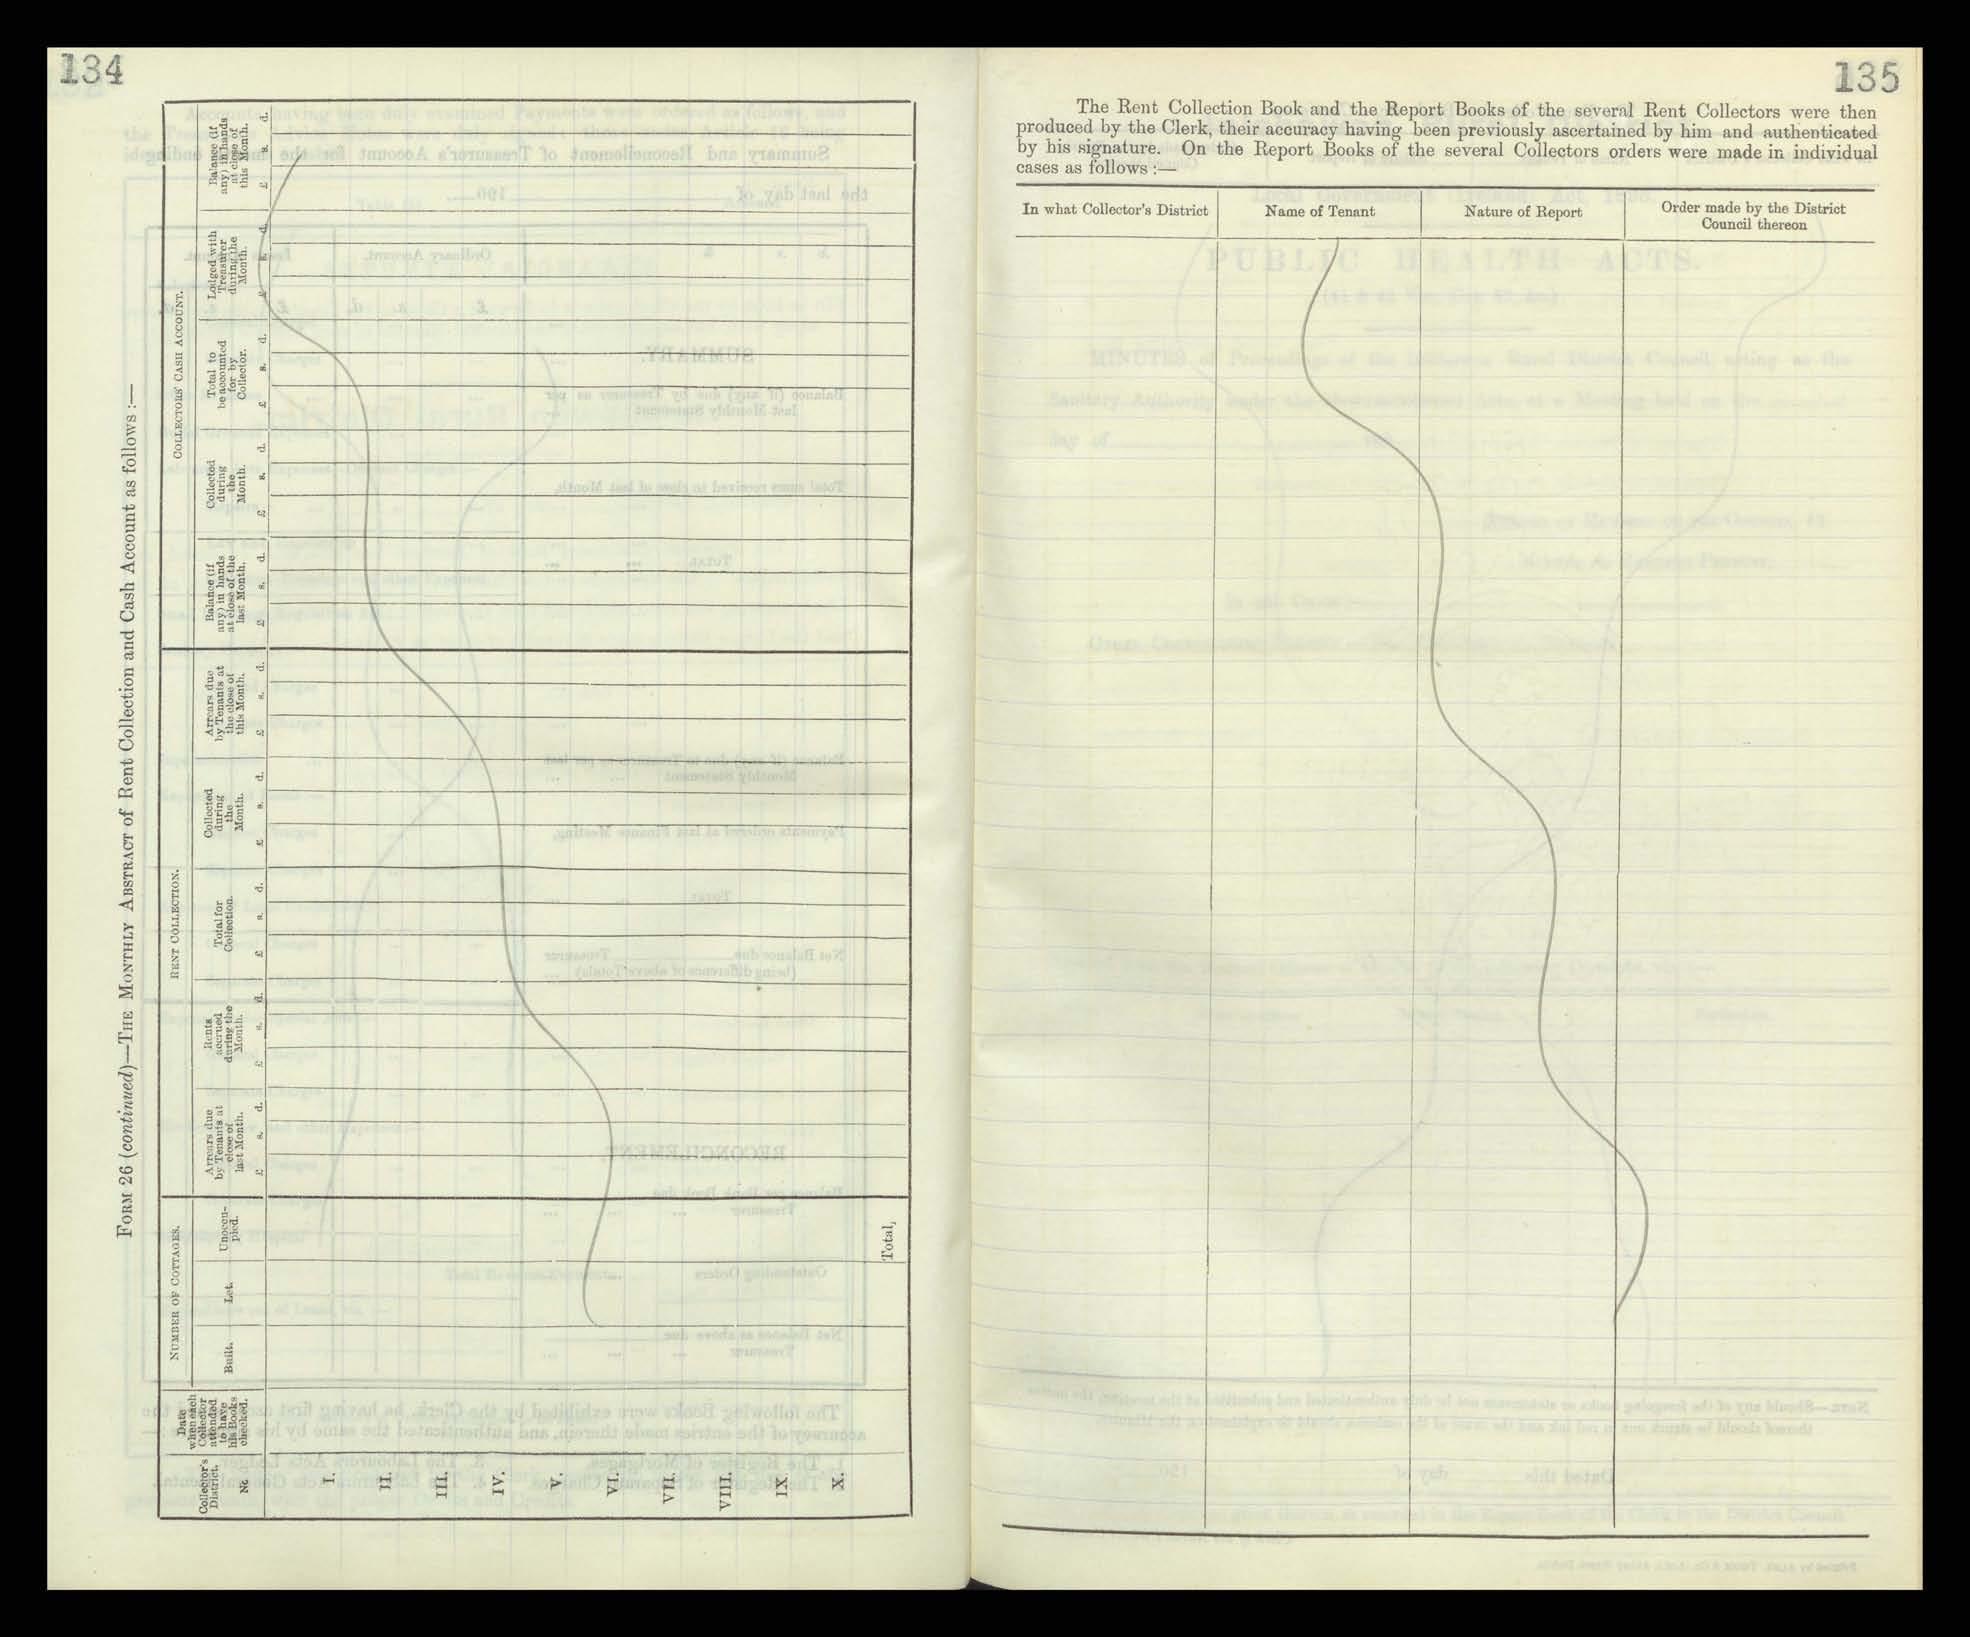 134
FORM 26 (continued)—THE MONTHLY ABSTRACT of Rent Collection and Cash Account as follows :—
Collector's
District.
No.
Date
when each
Collector
attended
to have
his Books
checked.
NUMBER OF COTTAGES.
Built.
Let.
Unoccu-
pied.
RENT COLLECTION.
Arrears due
by Tenants at
close of
last Month.
£ s. d.
Rents
accrued
during the
Month.
£ s. d.
Total for
Collection.
£ s. d.
Collected
during
the
Month.
£ s. d.
Arrears due
by Tenants at
the close of
this Month.
£ s. d.
COLLECTORS' CASH ACCOUNT.
Balance (if
any) in hands
at close of the
last Month.
£ s. d.
Collected
during
the
Month.
£ s. d.
Total to
be accounted
for by
Collector.
£ s. d.
Lodged with
Treasurer
during the
Month.
£ s. d.
Balance (if
any) in hands
at close of
this Month.
£ s. d.
I.
II.
III.
IV.
V.
VI.
VII.
VIII.
IX.
X.
Total,
135
The Rent Collection Book and the Report Books of the several Rent Collectors were then
produced by the Clerk, their accuracy having been previously ascertained by him and authenticated
by his signature. On the Report Books of the several Collectors orders were made in individual
cases as follows :—
In what Collector's District
Name of Tenant
Nature of Report
Order made by the District
Council thereon